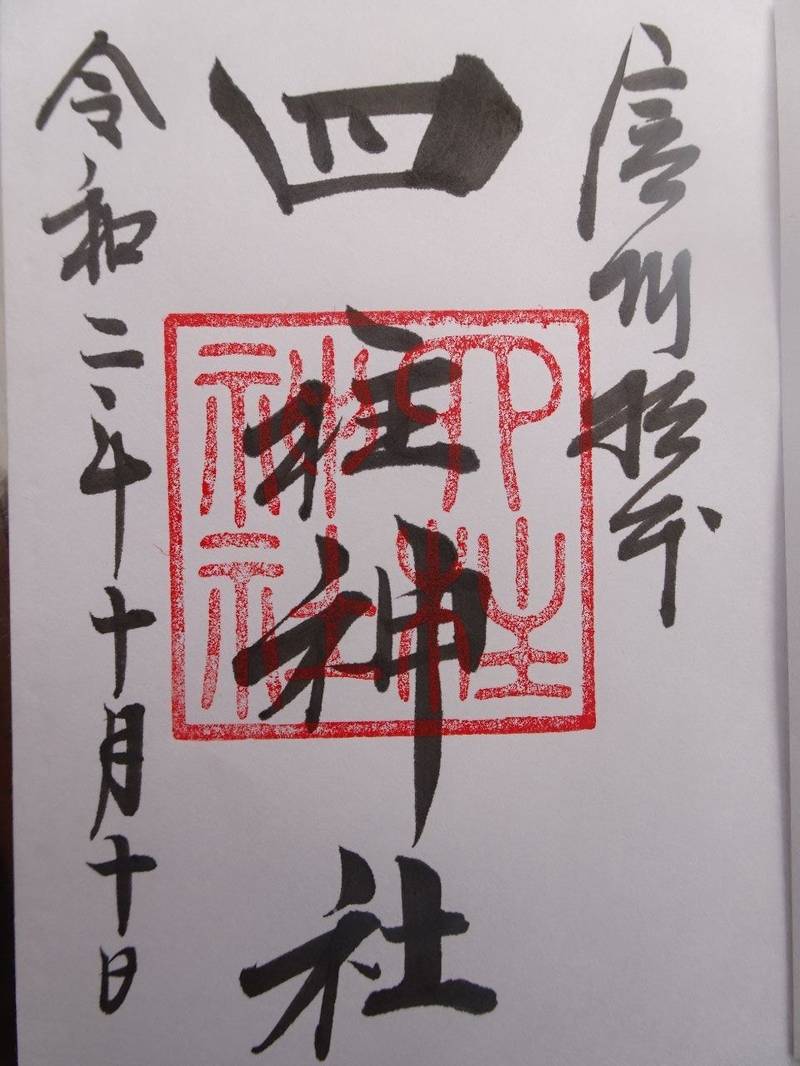 信州松本
四柱神社
四柱神社
令和二年十月十日